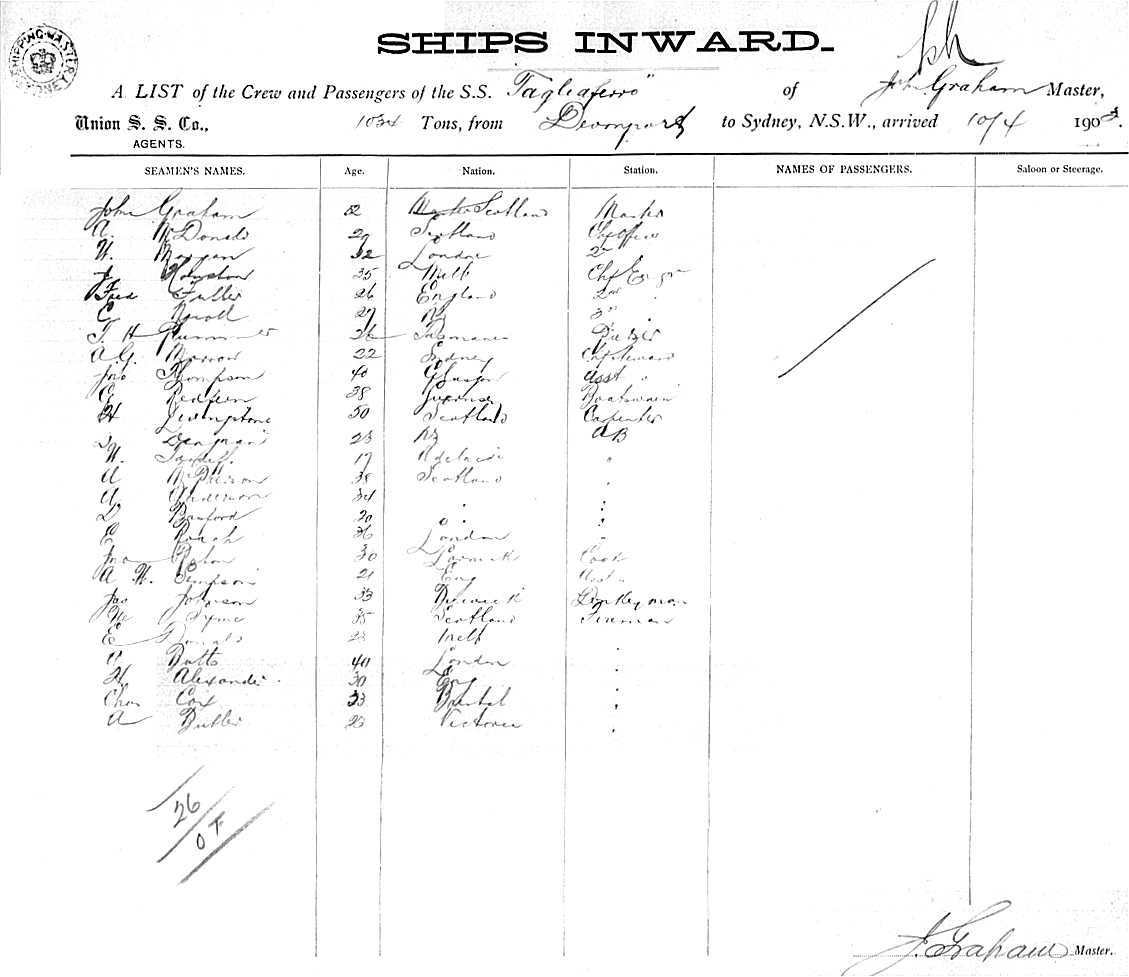 SHIPPING MASTER SYDNEY
SHIPS INWARD.
A LIST of the Crew and Passengers of the S.S. "Tagliaferro" of John Graham Master,
Union S. S. Co., 1034 Tons, from Devonport to Sydney, N.S.W., arrived 10/4 190
AGENTS.
SEAMEN'S NAMES. Age. Nation. Station. NAMES OF PASSENGERS. Saloon or Steerage.
John Graham 52 Scotland Master
A. McDonald 29 Scotland Chf Officer
W. Morgan 32 London 2nd
J. Houston 35 Melb Chf Engr
Fred Fuller 26 England 2nd "
C 27 NZ 3rd "
T. H Plummer 26 Tasmania Purser
A.G. Morrow 22 Sydney Chf Steward
Jno Thompson 40 Glasgow Asst "
G Redfern 38 Guernsey Boatswain
H Livingstone 50 Scotland Carpenter
D 23 NZ AB
W. 17 Adelaide "
A McPherson 38 Scotland "
A Anderson 34 " "
D Bamford 20 " "
E Roach 36 London "
Jno 30 Cook
A W. Simpson 21 Eng Asst "
Jas Johnson 33 Berwick Donkeyman
Syme 35 Scotland Fireman
E Donald 23 Melb
Butts 40 London "
H. Alexander 30 Eng "
Chas Cox 33 Bristol "
A Butler 23 Victoria "
26
J. Graham Master.